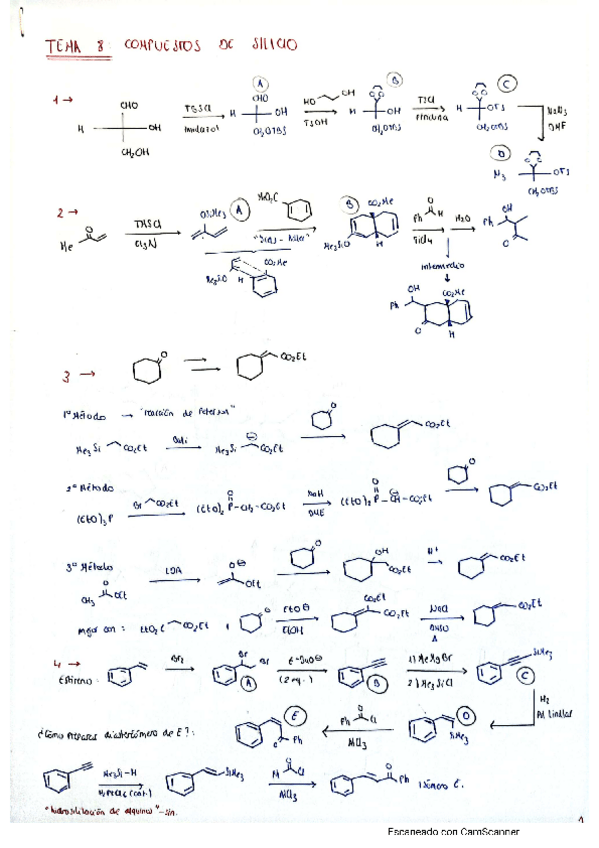 TEMA 8: COMPUESTOS DE SILICIO
1 →
CHO
H
OH
CH₂OH
TBSCl
imidazol
A
CHO
H
OH
CH₂OTBS
HO
OH
TSOH
B
H
OH
CH₂OTBS
TSCl
piridina
C
H
OTS
CH₂OTBS
NaN₃
DMF
D
N₃
OTS
CH₂OTBS
2 →
Me
O
TMSCl
Et₃N
OSiMe₃
A
MeO₂C
"Diels - Alder"
Me₃SiO
H
CO₂Me
B
CO₂Me
Me₃SiO
H
Ph
O
H
TiCl₄
H₂O
Ph
OH
O
intermedio
OH
Ph
CO₂Me
O
H
3 →
O
CO₂Et
1º Método → "reacción de Peterson"
Me₃Si
CO₂Et
BuLi
Me₃Si
⊖
CO₂Et
O
CO₂Et
2º Método
(EtO)₃P
Br
CO₂Et
(EtO)₂P-CH₂-CO₂Et
O
NaH
DME
(EtO)₂P-CH-CO₂Et
O
⊖
O
CO₂Et
3º Método
CH₃
O
OEt
LDA
O⊖
OEt
O
OH
CO₂Et
H⁺
CO₂Et
mejor con:
EtO₂C
CO₂Et
+
O
EtO⊖
EtOH
CO₂Et
CO₂Et
NaCl
DMSO
Δ
CO₂Et
4 →
Estireno:
Br₂
Br
Br
A
t-BuO⊖
(2 eq.)
B
1) MeMgBr
2) Me₃SiCl
SiMe₃
C
H₂
Pd Lindlar
D
SiMe₃
Ph
O
Cl
AlCl₃
E
O
Ph
¿Cómo preparas diastereómero de E?:
Me₃Si-H
H₂PtCl₆ (cat.)
SiMe₃
O
Cl
AlCl₃
O
Ph
isómero E.
"hidrosililación de alquinos" -sin.
1
Escaneado con CamScanner